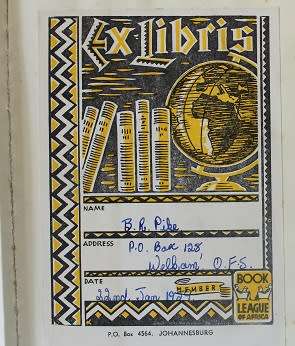 Ex Libris
NAME
B. R. Pike
ADDRESS
P.O. Box 128
Welkom, O.F.S.
DATE
22nd Jan
MEMBER
BOOK
LEAGUE
OF AFRICA
P.O. Box 4564, JOHANNESBURG